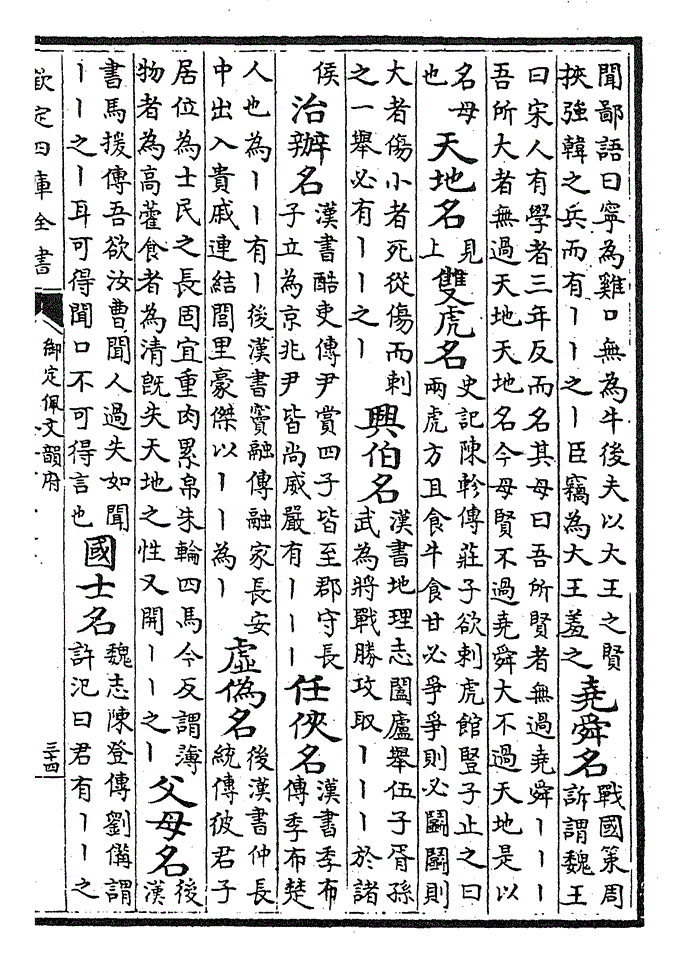 聞鄙語曰寧為雞口無為牛後夫以大王之賢挾強韓之兵而有丨丨之丨臣竊為大王羞之堯舜名戰國策周訴謂魏王
曰宋人有學者三年反而名其母曰吾所賢者無過堯舜丨丨丨吾所大者無過天地天地名今母賢不過堯舜大不過天地是以
名母也天地名見上雙虎名史記陳軫傳莊子欲刺虎館豎子止之曰兩虎方且食牛食甘必爭爭則必鬭鬭則
大者傷小者死從傷而刺之一舉必有丨丨之丨興伯名漢書地理志闔廬舉伍子胥孫武為將戰勝攻取丨丨丨於諸
侯治辦名漢書酷吏傳尹賞四子皆至郡守長子立為京兆尹皆尚威嚴有丨丨丨任俠名漢書季布傳季布楚
人也為丨丨有丨後漢書竇融傳融家長安中出入貴戚連結閭里豪傑以丨丨為丨虛偽名後漢書仲長統傳彼君子
居位為士民之長固宜重肉累帛朱輪四馬今反謂薄物者為高藿食者為清既失天地之性又開丨丨之丨父母名後漢
書馬援傳吾欲汝曹聞人過失如聞丨丨之丨耳可得聞口不可得言也國士名魏志陳登傳劉備謂許汜曰君有丨丨之
欽定四庫全書
御定佩文韻府
三十四